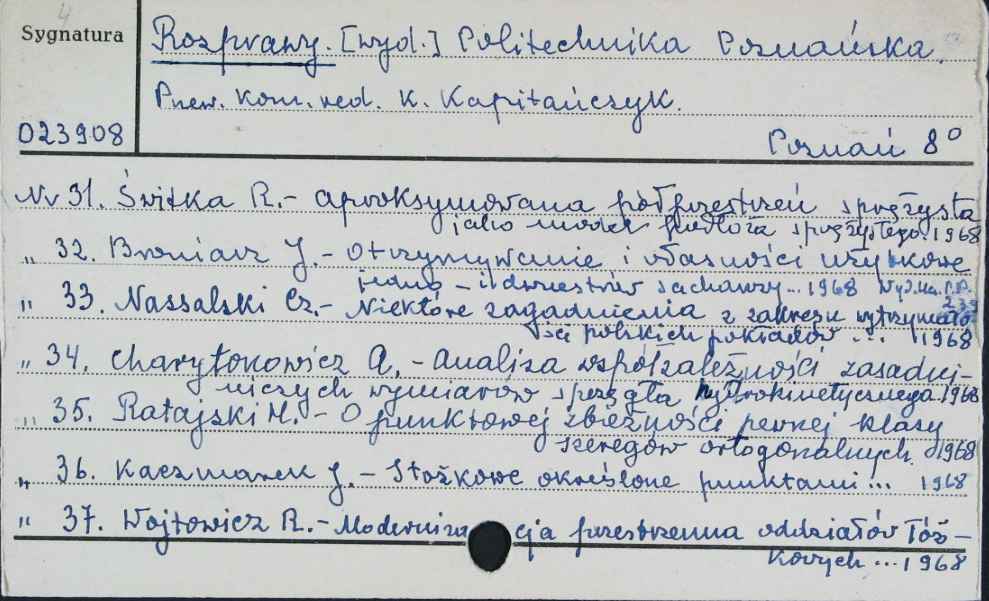 4
Sygnatura
Rozprawy. [wyd.] Politechnika Poznańska.
Przew. Kom. red. K. Kapitańczyk.
023908
Poznań 8°
Nr 31. Świtka R. - Aproksymowana półprzestrzeń sprężysta
jako model podłoża sprężystego. 1968
" 32. Broniarz J. - Otrzymywanie i własności użytkowe
jedno - i dwuestrów sacharozy... 1968
" 33. Nassalski Cz. - Niektóre zagadnienia z zakresu wytrzymało
ści polskich pokładów ... 1968
" 34. Charytonowicz A. - Analiza współzależności zasadni-
niczych wymiarów sprzęgła hydrokinetycznego. 1968
" 35. Ratajski H. - O punktowej zbieżności pewnej klasy
szeregów ortogonalnych. 1968
" 36. Kaczmarek J. - Stożkowe określone punktami ... 1968
" 37. Wojtowicz R. - Modernizacja przestrzenna oddziałów łóż-
kowych ... 1968